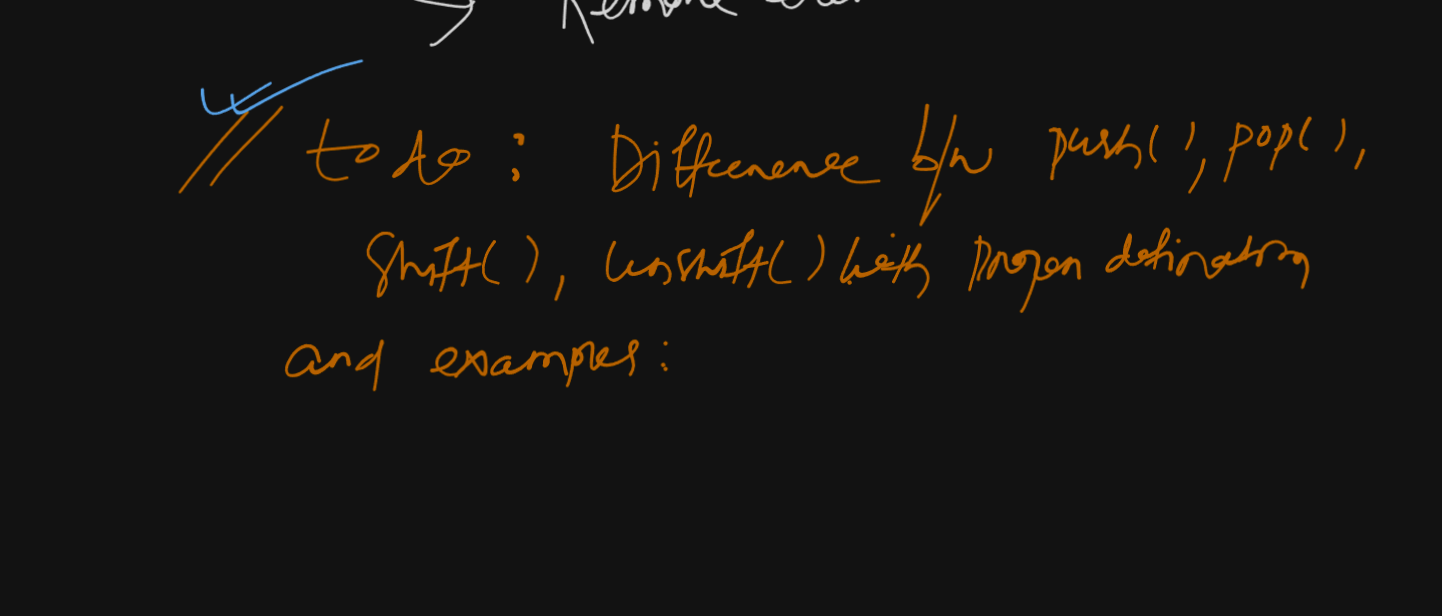 → Remove
// todo: Difference b/w push(), pop(),
shift(), unshift() with proper defination
and examples: